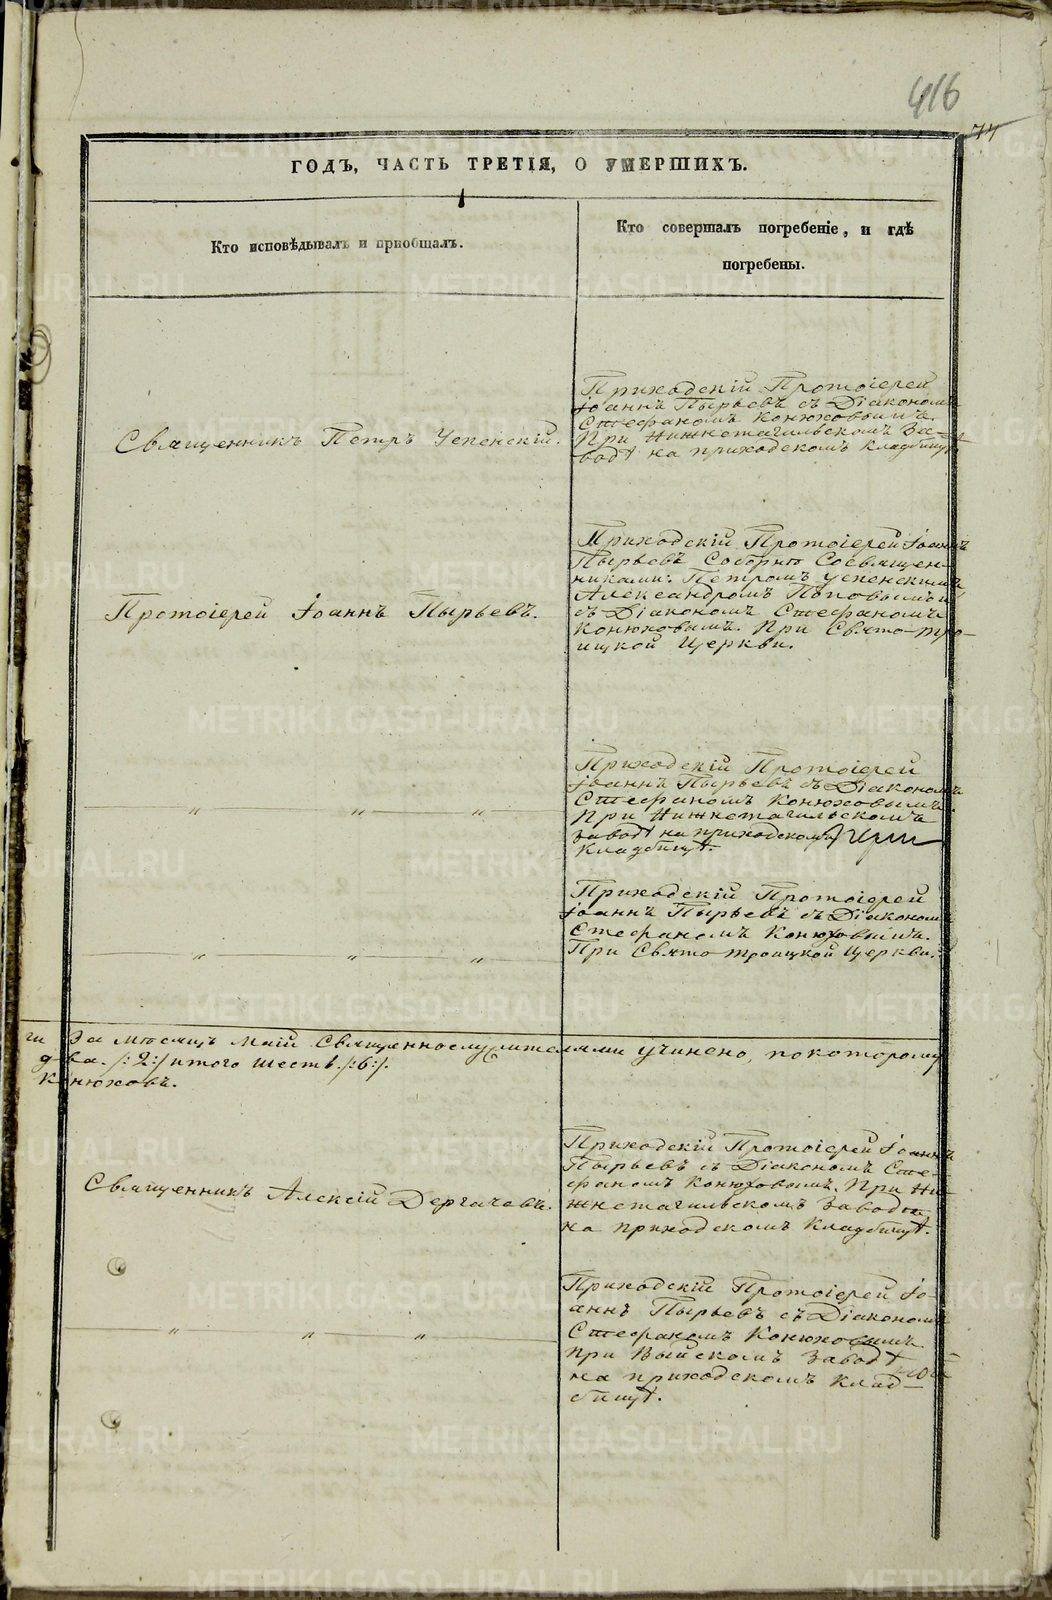 416
77
ГОДЪ, ЧАСТЬ ТРЕТІЯ, О УМЕРШИХЪ.
Кто исповѣдывалъ и пріобщалъ.
Кто совершалъ погребеніе, и гдѣ
погребены.
Священникъ Петръ Успенскій.
Приходскій Протоіерей
Іоаннъ Пырьевъ съ Діакономъ
Стефаномъ Конюховымъ.
При Нижнетагильскомъ За-
водѣ на приходскомъ кладбищѣ
Протоіерей Іоаннъ Пырьевъ.
Приходскій Протоіерей Іоаннъ
Пырьевъ Соборнѣ Сосвящен-
никами: Петромъ Успенскимъ
Александромъ Поповымъ и
съ Діакономъ Стефаномъ
Конюховымъ. При Свято-тро-
ицкой Церкви.
— „ — „ — „ —
Приходскій Протоіерей
Іоаннъ Пырьевъ съ Діакономъ
Стефаномъ Конюховымъ.
При Нижнетагильскомъ
заводѣ на приходскомъ
Кладбищѣ.
— „ — „ — „ —
Приходскій Протоіерей
Іоаннъ Пырьевъ съ Діакономъ
Стефаномъ Конюховымъ.
При Свято троицкой Церкви.
За мѣсяцъ Маій Священнослужителями учинено, по которому
два. /:2:/ итого шесть. /:6:/.
Конюховъ.
Священникъ Алексій Дергачевъ.
Приходскій Протоіерей Іоаннъ
Пырьевъ съ Діакономъ Сте-
фаномъ Конюховымъ. При Ни-
жнетагильскомъ Заводѣ
на приходскомъ Кладбищѣ.
— „ — „ — „ —
Приходскій Протоіерей Іо-
аннъ Пырьевъ съ Діакономъ
Стефаномъ Конюховымъ
При Выйскомъ Заводѣ
на приходскомъ Клад-
бищѣ.
METRIKI.GASO-URAL.RU